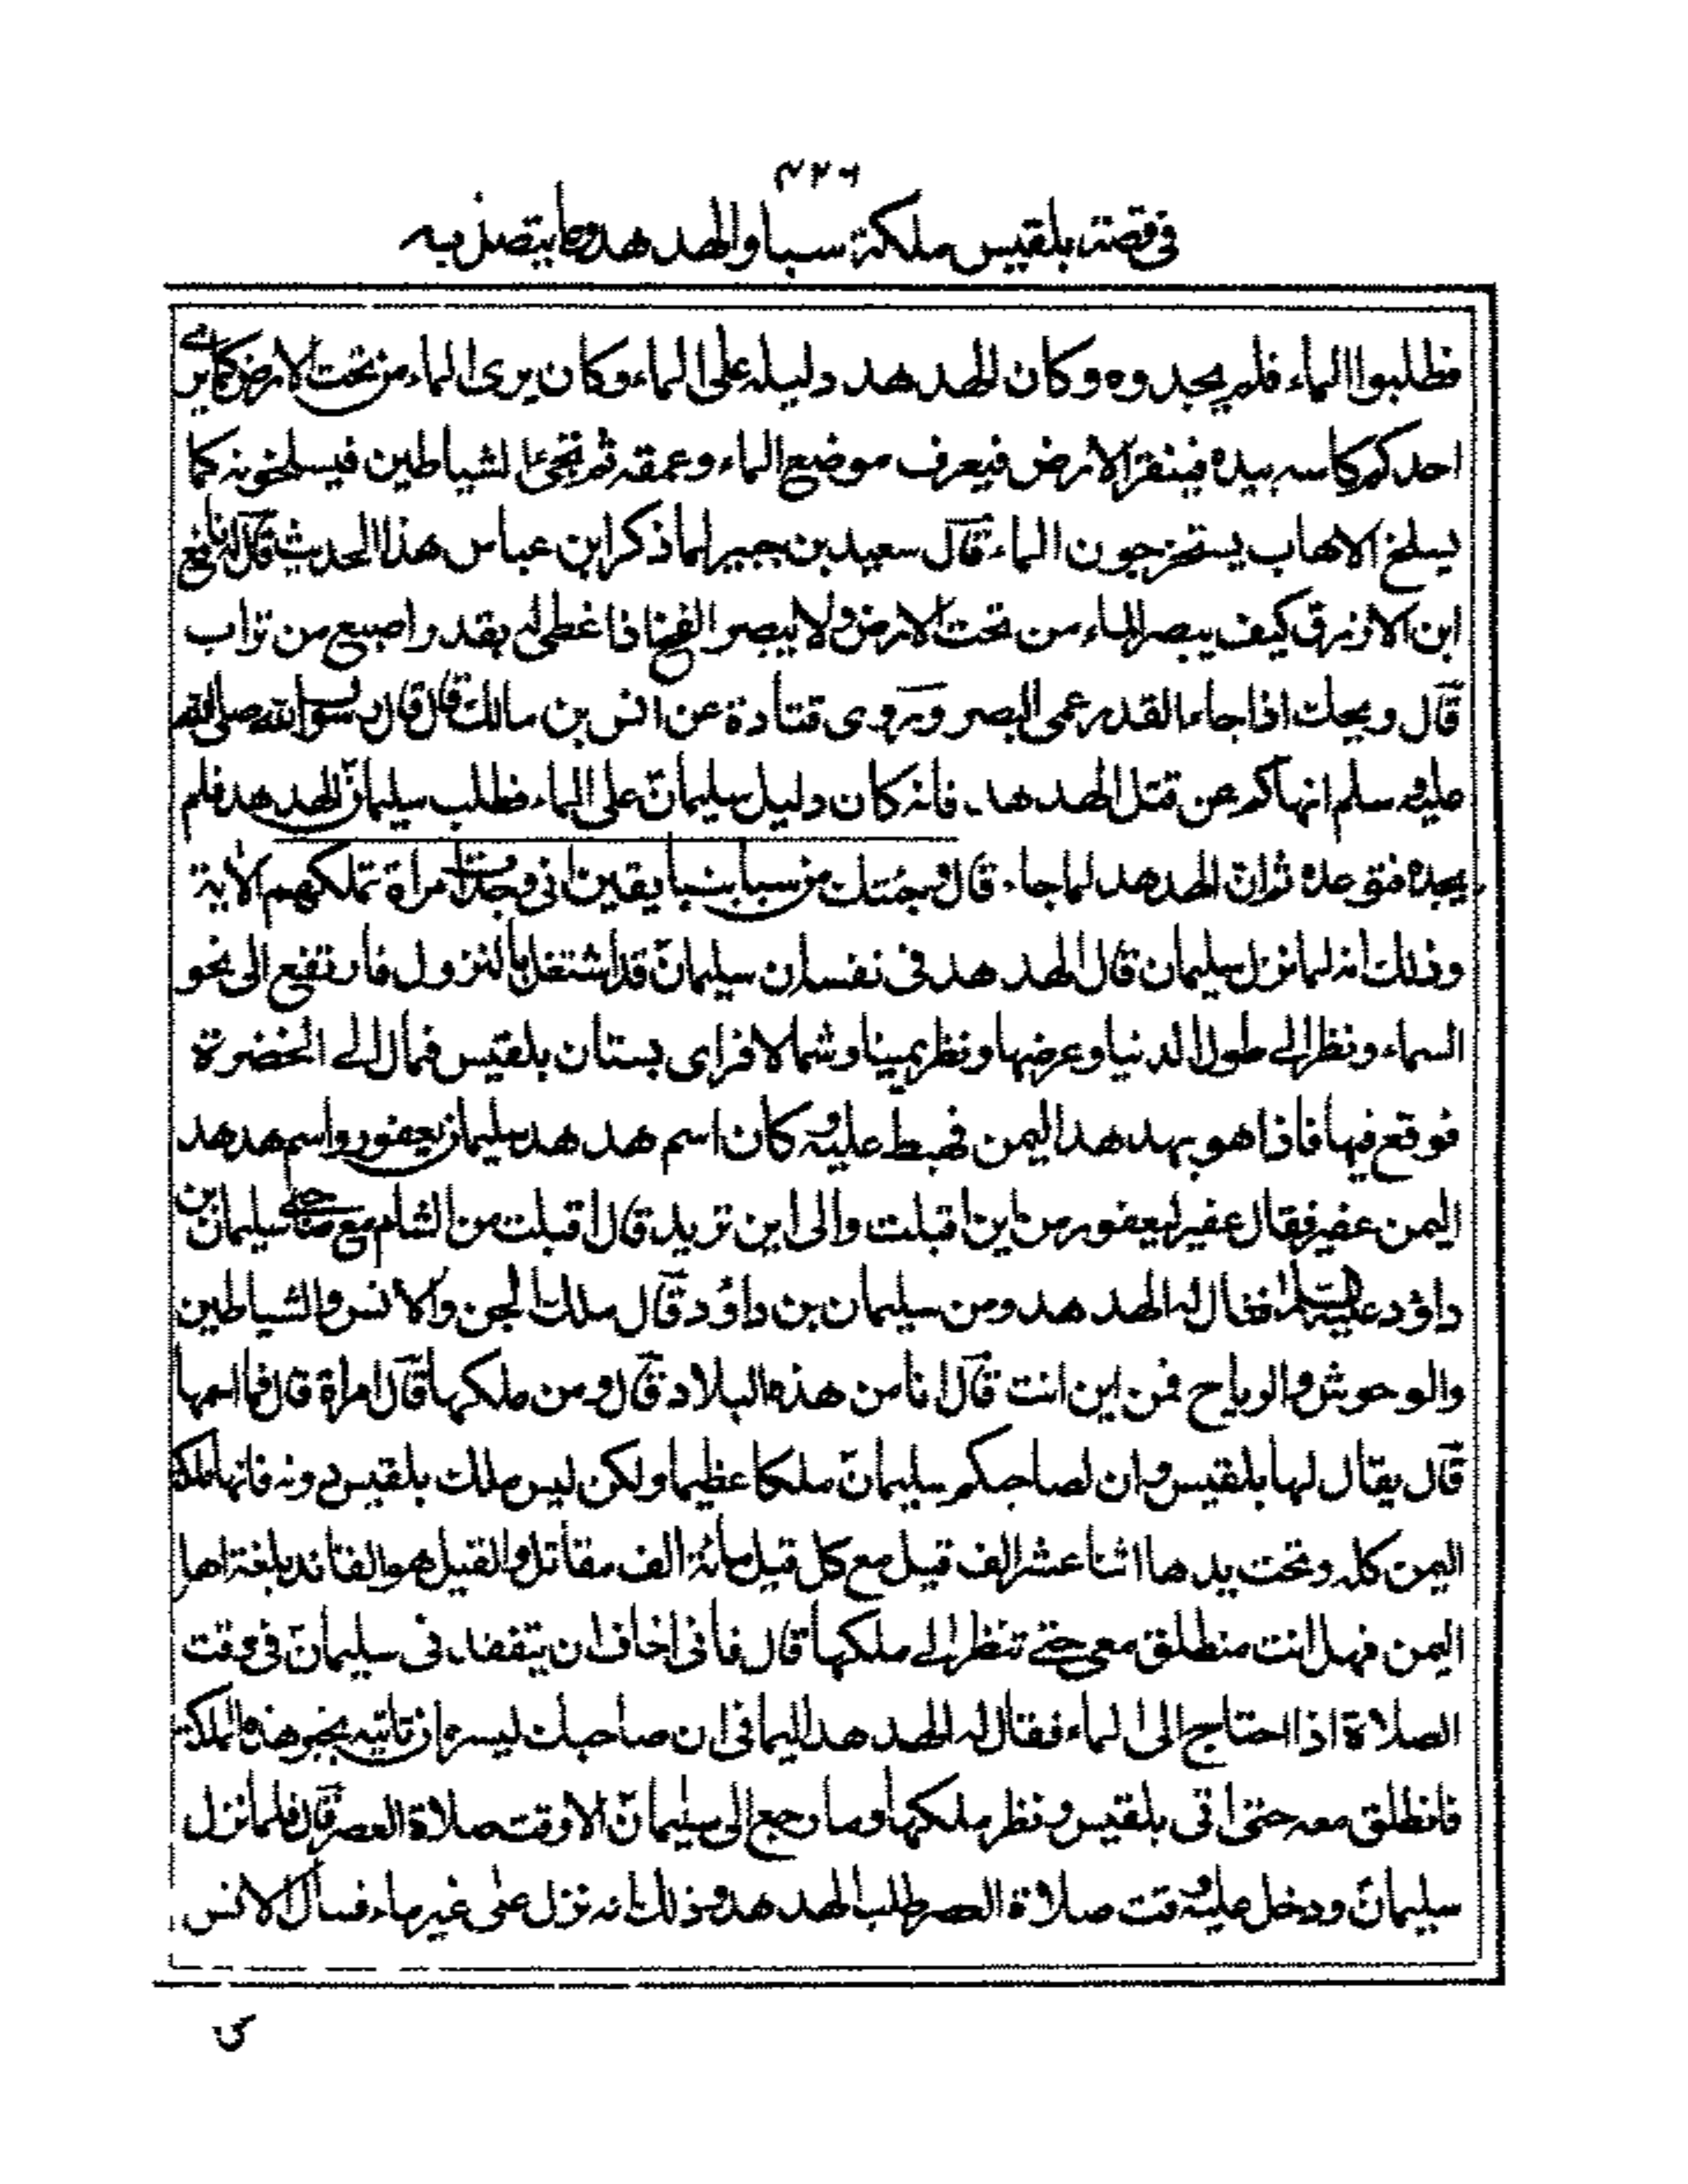 في قصة بلقيس ملكة سبا والهدهد وما يتصل به
فطلبوا الماء فلم يجدوه وكان الهدهد دليله على الماء وكان يرى الماء من تحت الارض كما يرى
احدكم كاسه بيده فينقر الارض فيعرف موضع الماء وعمقه ثم تجئ الشياطين فيسلخونه كما
يسلخ الاهاب يستخرجون الماء قال سعيد بن جبير لما ذكر ابن عباس هذا الحديث قال له نافع
ابن الازرق كيف يبصر الماء من تحت الارض ولا يبصر الفخ اذا غطى له بقدر اصبع من تراب
قال ويحك اذا جاء القدر عمى البصر وروى قتادة عن انس بن مالك قال قال رسول الله صلى الله
عليه وسلم انهاكم عن قتل الهدهد فانه كان دليل سليمان على الماء فطلب سليمان الهدهد فلم
يجده فتوعده ثم ان الهدهد لما جاء قال وجئتك من سبا بنبا يقين انى وجدت امراة تملكهم الاية
وذلك انه لما نزل سليمان قال الهدهد في نفسه ان سليمان قد اشتغل بالنزول فارتفع الى نحو
السماء ونظر الى طول الدنيا وعرضها ونظر يمينا وشمالا فراى بستان بلقيس فمال الى الخضرة
فوقع فيها فاذا هو بهدهد اليمن فهبط عليه وكان اسم هدهد سليمان يعفور واسم هدهد
اليمن عفير فقال عفير ليعفور من اين اقبلت والى اين تريد قال اقبلت من الشام مع صاحبى سليمان بن
داؤد عليه السلام فقال له الهدهد ومن سليمان بن داؤد قال ملك الجن والانس والشياطين
والوحوش والرياح فمن اين انت قال انا من هذه البلاد قال ومن ملكها قال امراة قال فما اسمها
قال يقال لها بلقيس وان لصاحبكم سليمان ملكا عظيما ولكن ليس ملك بلقيس دونه فانها ملكة
اليمن كله وتحت يدها اثنا عشر الف قيل مع كل قيل مائة الف مقاتل والقيل هو القائد بلغة اهل
اليمن فهل انت منطلق معى حتى تنظر الى ملكها قال فانى اخاف ان يتفقدنى سليمان فى وقت
الصلاة اذا احتاج الى الماء فقال له الهدهد اليمانى ان صاحبك ليسره ان تاتيه بخبر هذه الملكة
فانطلق معه حتى اتى بلقيس ونظر ملكها وما رجع الى سليمان الا وقت صلاة العصر قال فلما نزل
سليمان ودخل عليه وقت صلاة العصر طلب الهدهد وذلك انه نزل على غير ماء فسأل الانس